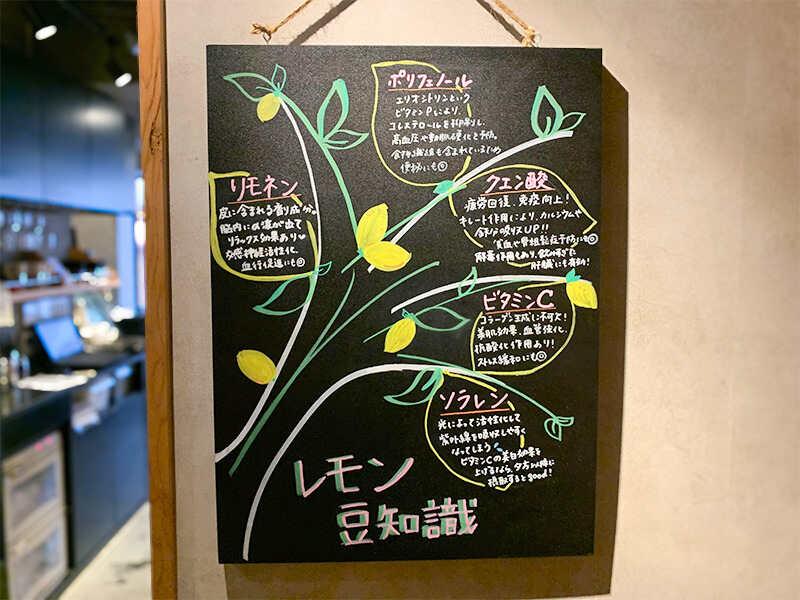 ポリフェノール
エリオシトリンという
ビタミンPにより、
コレステロールを抑制し、
高血圧や動脈硬化を予防。
食物繊維も含まれているため
便秘にも◎
クエン酸
疲労回復、免疫向上！
キレート作用により、カルシウムや
鉄分の吸収UP!!
貧血や骨粗鬆症予防にも◎
解毒作用もあり、飲みすぎた
肝臓にも有効！
リモネン
皮に含まれる香り成分。
脳内にα波が出て
リラックス効果あり♥
交感神経活性化、
血行促進にも◎
ビタミンC
コラーゲン生成に不可欠！
美肌効果、血管強化、
抗酸化作用あり！
ストレス緩和にも◎
ソラレン
光によって活性化して
紫外線を吸収しやすく
なってしまう
ビタミンCの美白効果を
上げるなら、夕方以降に
摂取するとgood!
レモン
豆知識